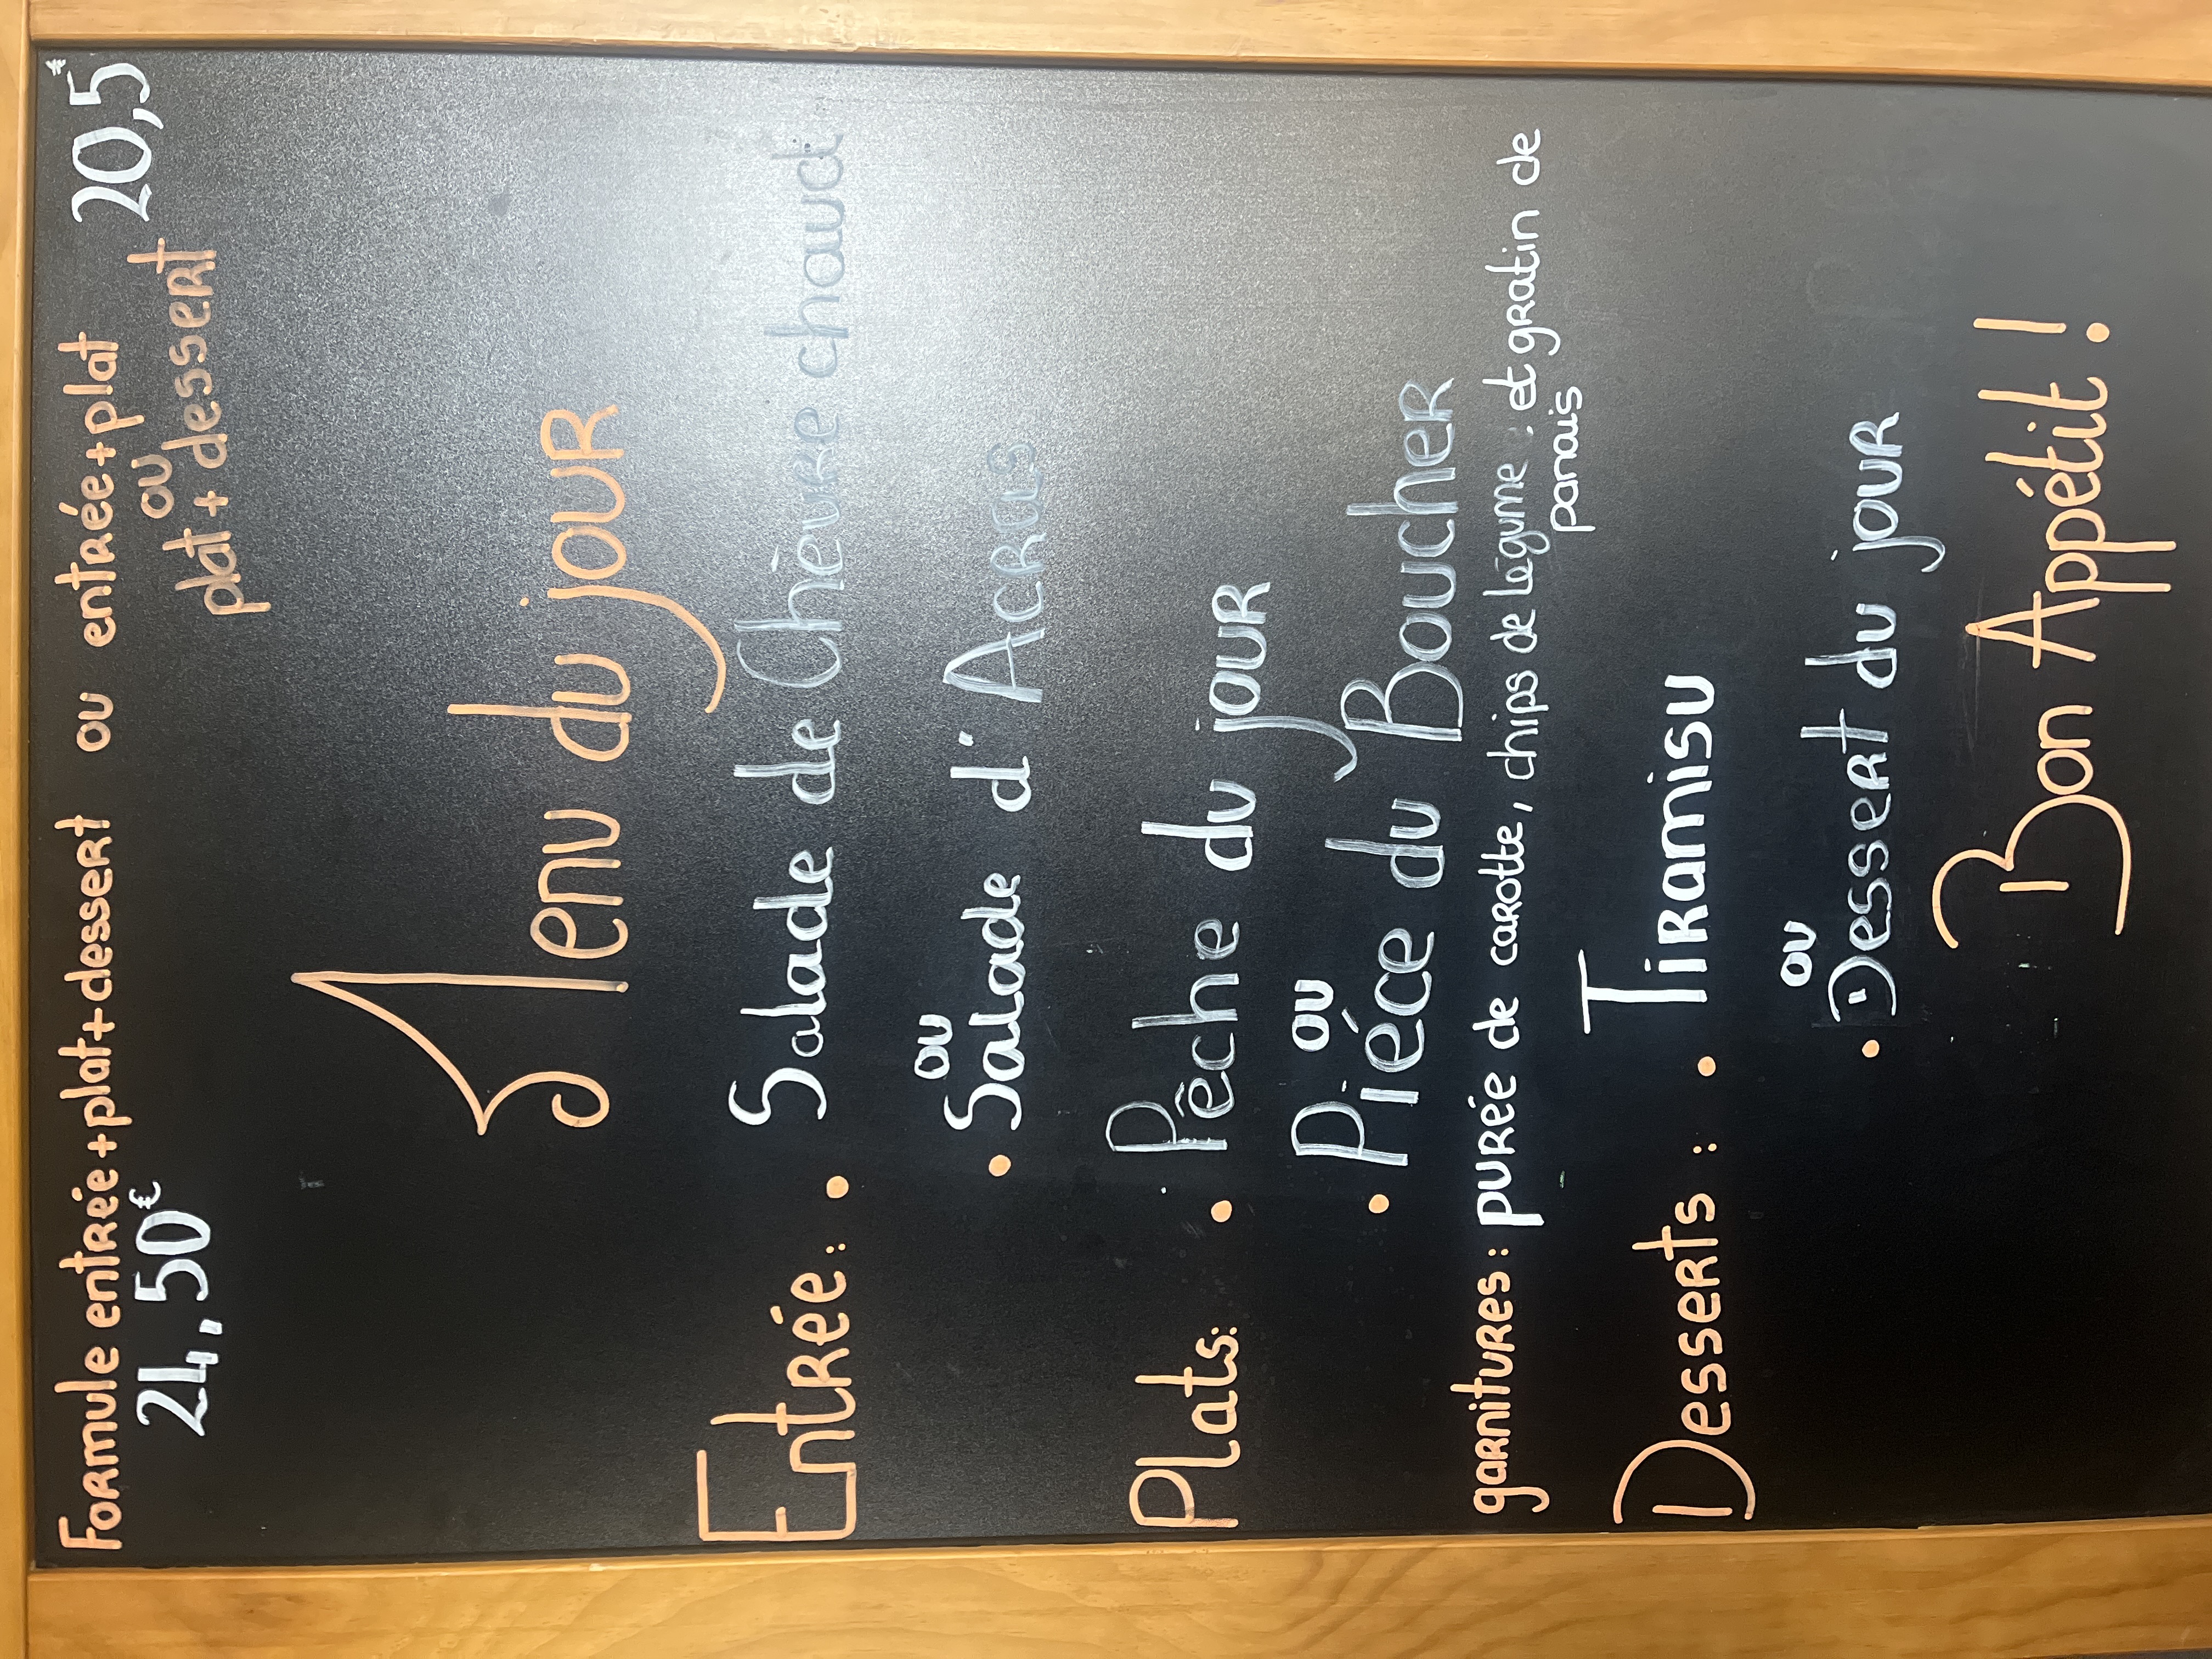 Formule entrée+plat+dessert ou entrée+plat 20,5€
24,50€ ou
plat+dessert
Menu du jour
Entrée: • Salade de Chèvre chaud
ou
• Salade d'Acras
Plats: • Pêche du jour
ou
• Piéce du Boucher
garnitures: purée de carotte, chips de légume et gratin de
panais
Desserts: • Tiramisu
ou
• Dessert du jour
Bon Appétit!